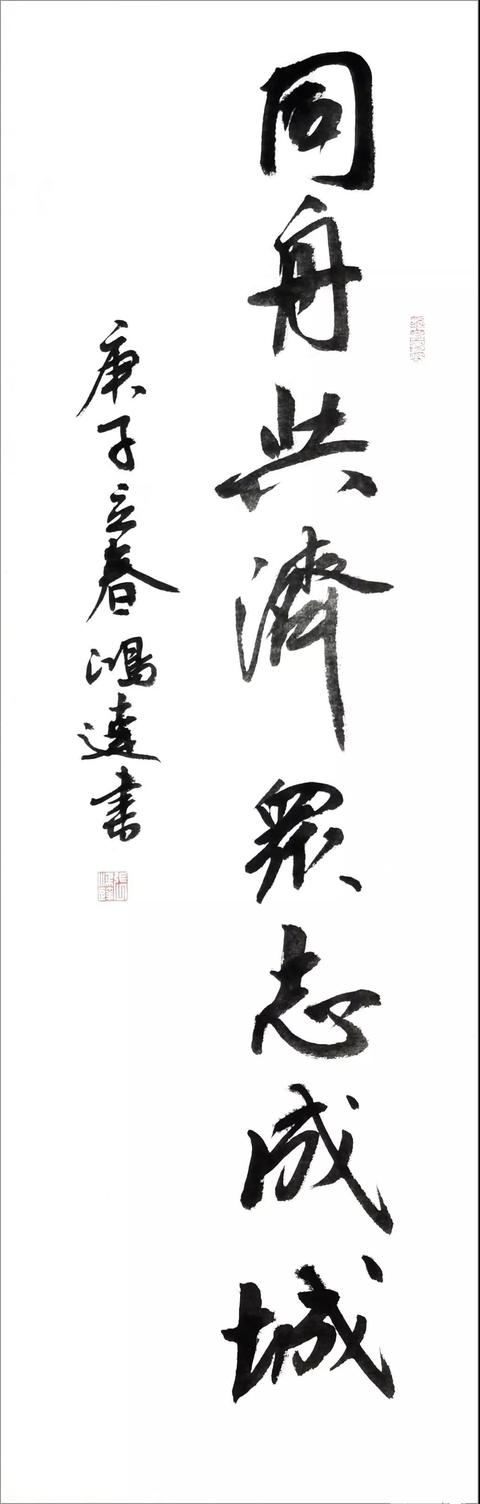 同舟共濟眾志成城
庚子立春鴻達書